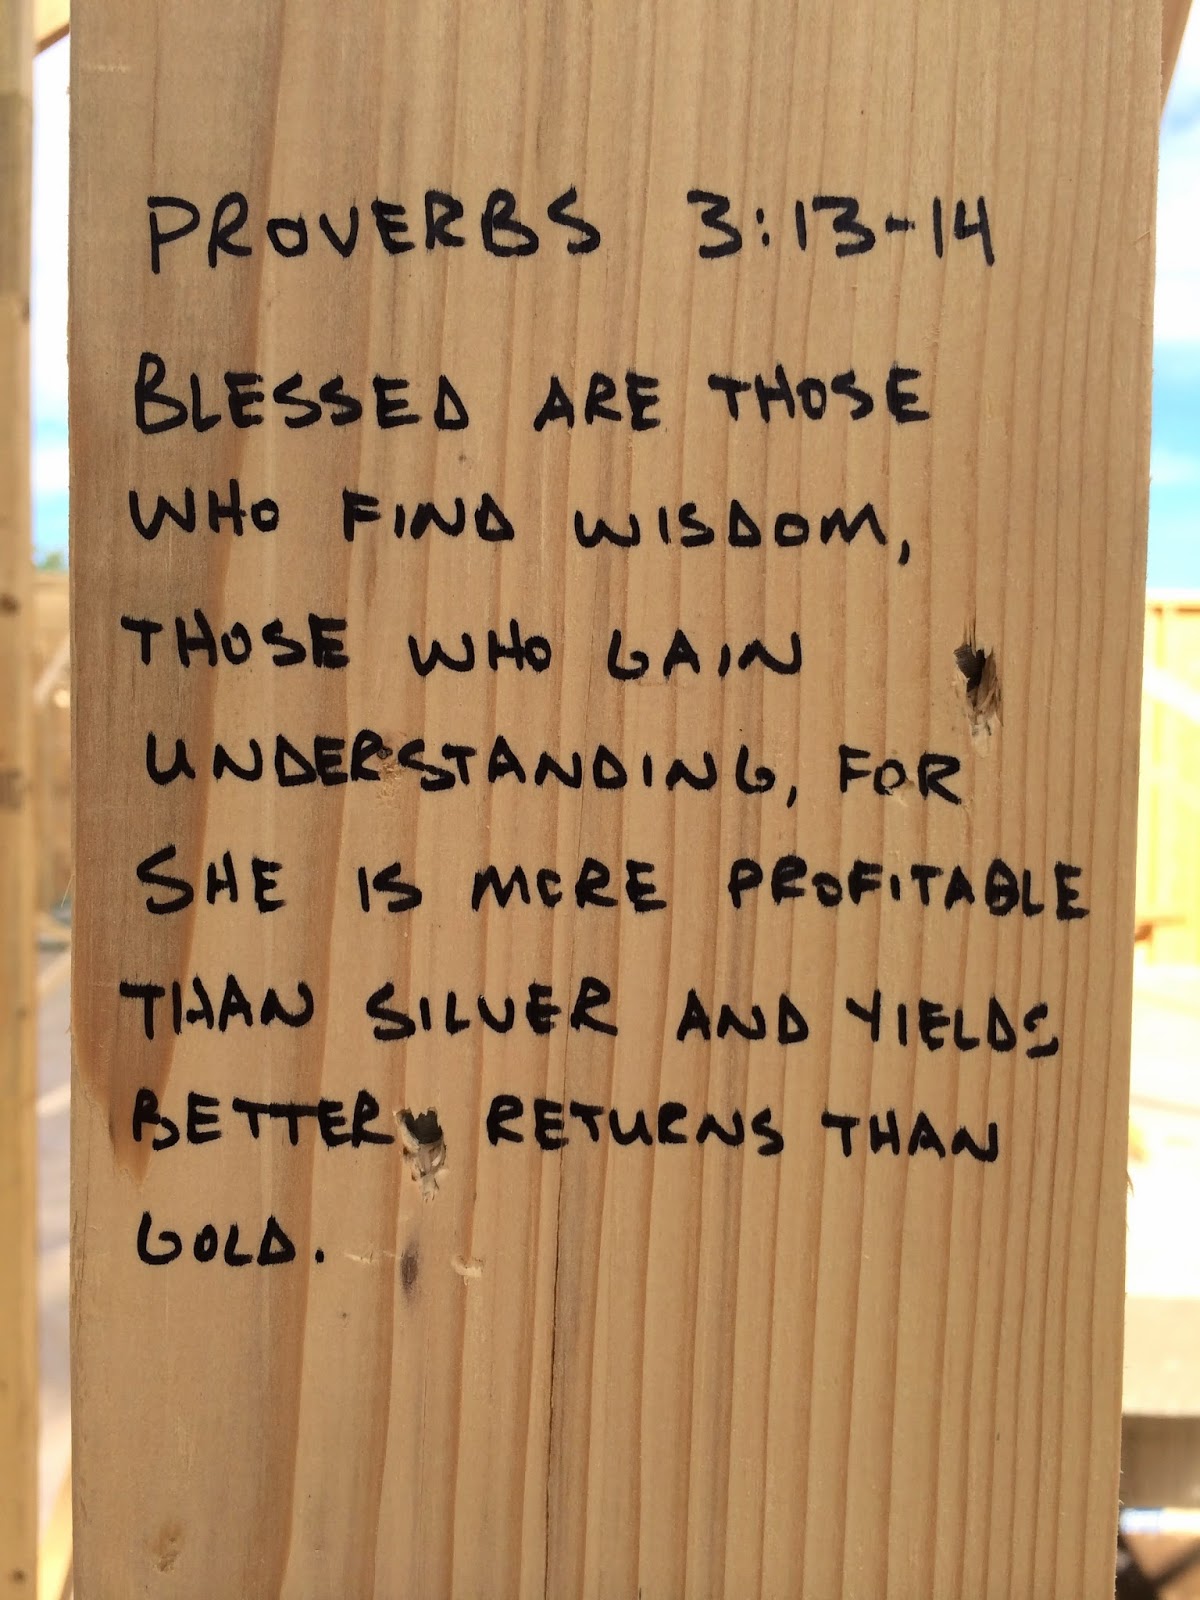 PROVERBS 3:13-14
BLESSED ARE THOSE
WHO FIND WISDOM,
THOSE WHO GAIN
UNDERSTANDING, FOR
SHE IS MORE PROFITABLE
THAN SILVER AND YIELDS
BETTER RETURNS THAN
GOLD.